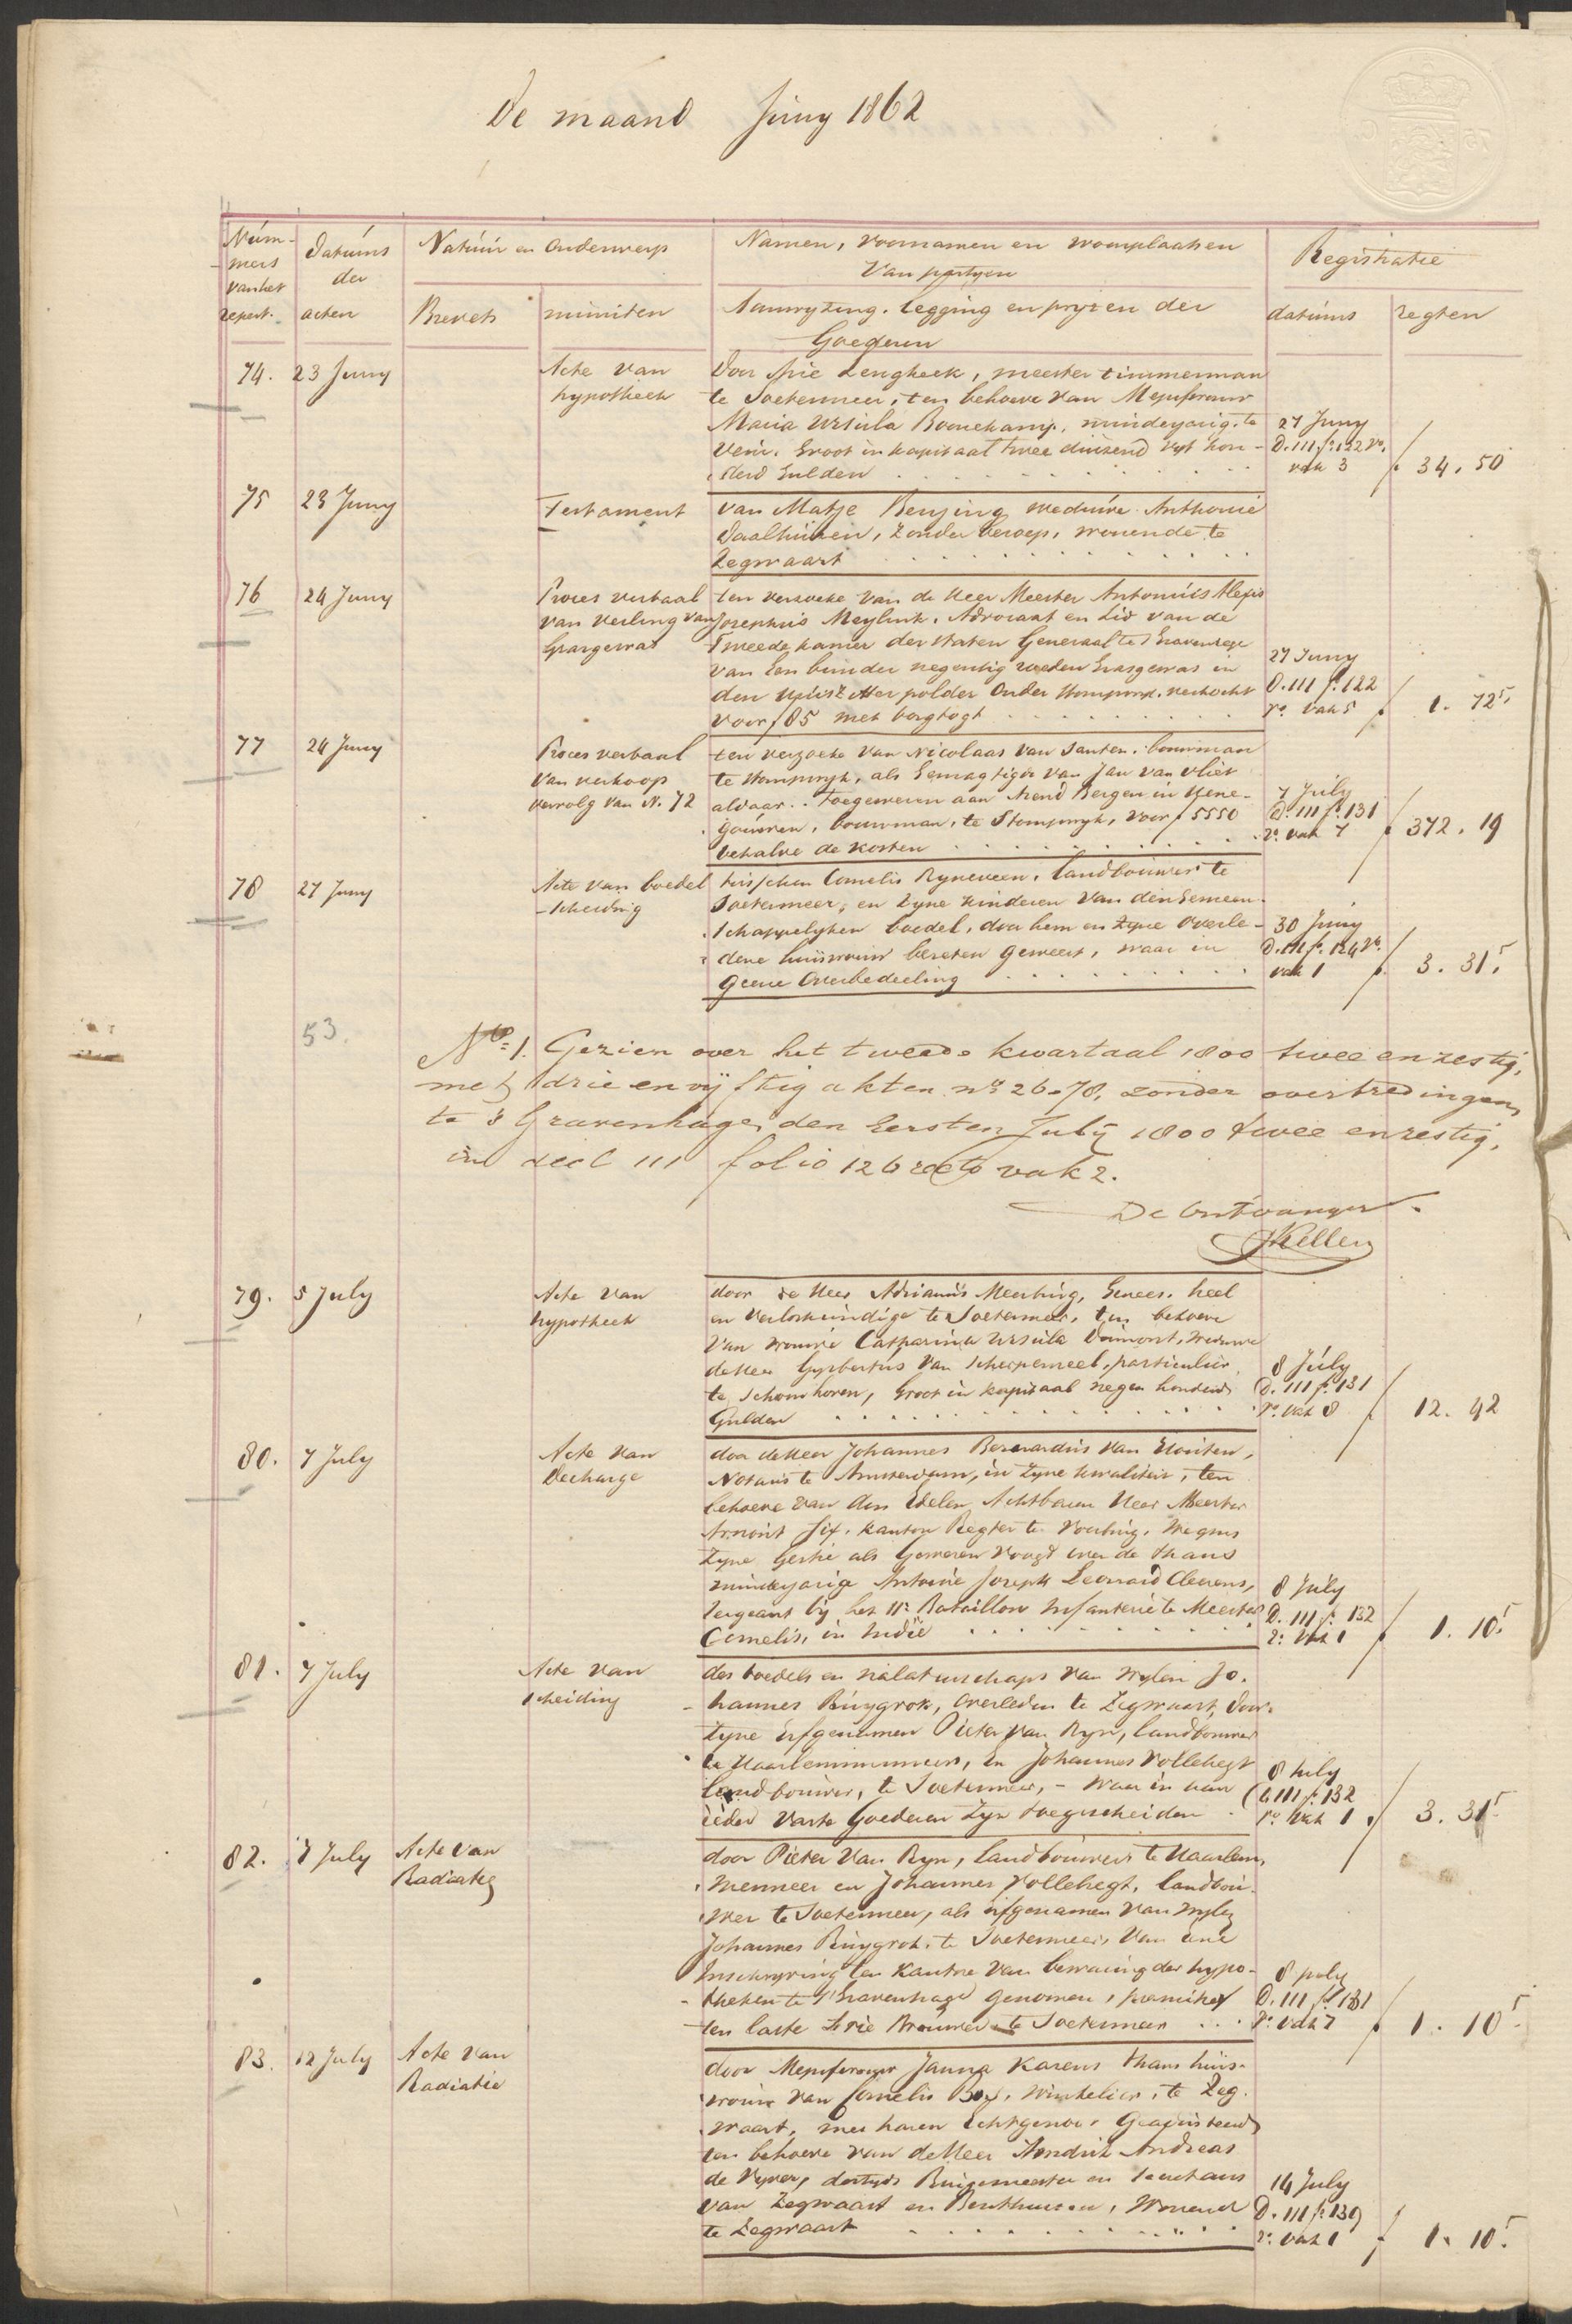 De maand Juny 1862
Num-
mers
van het
repert.
Datums
der
acten
Natuur en Onderwerp
Brevets
minuten
Namen, voornamen en woonplaatsen
Van partyen
Aanwyzing, legging en pryzen der
Goederen
Registratie
datums
regten
74. 23 Juny
Acte van
hypotheek
Door Arie Lengkeek, meester timmerman
te Soetermeer, ten behoeve van Mejufvrouw
Maria Ursula Boonekamp, minderjarig, te
Veur. Groot in kapitaal twee duizend vyf hon-
derd Gulden
27 Juny
D. 111 fo. 122 vo.
vak 3
f 34.50
75 23 Juny
Testament
van Matje Bensing weduwe Anthonie
Daalhuizen, zonder beroep, wonende te
Zegwaart
76 24 Juny
Proces verbaal
van veiling van
Grasgewas
ten verzoeke van de Heer Meester Antonius Alexis
Josephus Meylink, Advocaat en Lid van de
Tweede kamer der Staten Generaal te s'Gravenhage
van Een bunder negentig roeden Grasgewas in
den polder Onder Stompwyk. verkocht
voor f 85 met borgtogt
27 Juny
D. 111 fo. 122
ro. vak 5
f 1.725
77 24 Juny
Proces verbaal
van verkoop
vervolg van N. 72
ten verzoeke van Nicolaas van Santen, bouwman
te Stompwyk, als Gemagtigde van Jan van Vliet
aldaar. Toegewezen aan Arend Bergen in Hene-
gouwen, bouwman, te Stompwyk, voor f 5550
behalve de kosten
7 July
D. 111 fo. 131
ro. vak 7
f 372.19
78 27 Juny
Acte van boedel
scheiding
tusschen Cornelis Ryneveen, landbouwer te
Soetermeer, en zyne kinderen van den Gemeen-
schappelyken boedel, door hem en zyne overle-
dene huisvrouw bezeten geweest, waar in
geene Overbedeeling
30 Juny
D. 111 fo. 124 vo.
vak 1
f 3.315
53.
No. 1. Gezien over het tweede kwartaal 1800 twee en zestig,
met drie en vyftig akten nos 26-78, zonder overtredingen,
te 's Gravenhage, den Eersten July 1800 twee en zestig,
in deel 111 folio 126 recto vak 2.
De Ontvanger
Kellen
79. 5 July
Acte van
hypotheek
door de Heer Adrianus Meerburg, Genees, heel
en Verloskundige te Soetermeer, ten behoeve
Van vrouwe Catharina Ursula Dumont, Weduwe
de Heer Gysbertus van Scherpenzeel, particulier
te Schoonhoven, Groot in kapitaal negen honderd
Gulden
8 July
D. 111 fo. 131
ro. vak 8
f 12.42
80. 7 July
Acte van
Decharge
door de Heer Johannes Bernardus van Houten,
Notaris te Amsterdam, in zyne kwaliteit, ten
behoeve van den Edelen Achtbaren Heer Meester
Arnout Six, kanton Regter te Voorburg, wegens
zyne Gestie als Geweezen Voogd over de thans
minderjarige Antoine Joseph Leonard Clerens,
Sergeant by het 11e Bataillon Infanterie te Meester
Cornelis, in Indië
8 July
D. 111 fo. 132
ro. vak 1
f 1.105
81. 7 July
Acte van
scheiding
des boedels en nalatenschaps van wylen Jo-
hannes Ruygrok, overleden te Zegwaart, door
zyne Erfgenamen Pieter van Ryn, landbouwer
te Haarlemmermeer, en Johannes Vollebregt
landbouwer, te Soetermeer, - Waar in aan
ieder Vaste Goederen zyn toegescheiden
8 July
D. 111 fo. 132
ro. vak 1
f 3.315
82. 7 July
Acte van
Radiatie
door Pieter van Ryn, landbouwer te Haarlem-
mermeer en Johannes Vollebregt, landbou-
wer te Soetermeer, als erfgenamen van wylen
Johannes Ruygrok, te Soetermeer, van eene
Inschryving ten kantore van bewaring der hypo-
theken te s'Gravenhage genomen,
ten laste Arie Brouwer te Soetermeer
8 July
D. 111 fo. 131
ro. vak 7
f 1.105
83. 12 July
Acte van
Radiatie
door Mejufvrouw Janna Karens thans huis-
vrouw van Cornelis Bos, winkelier, te Zeg-
waart, met haren Echtgenoot Geadsisteerd
ten behoeve van de Heer Hendrik Andreas
de Vyver, destyds Burgemeester en Secretaris
van Zegwaart en Benthuizen, Wonende
te Zegwaart
14 July
D. 111 fo. 139
ro. vak 1
f 1.105